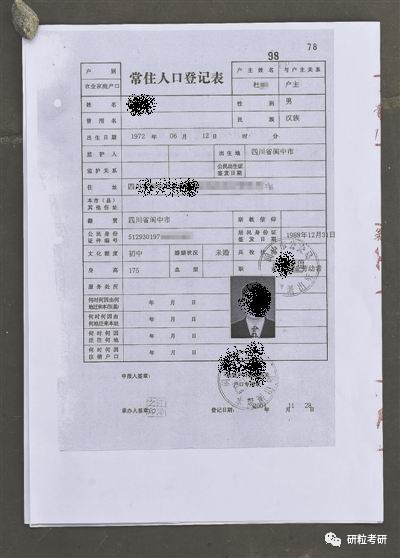 98
78
常住人口登记表
户 别
户主姓名
与户主关系
农业家庭户口
杜
户主
姓 名
性 别
男
曾用名
民 族
汉族
出生日期
1972 年 06 月 12 日 时 分
监护人
出生地
四川省阆中市
监护关系
公民出生证
签发日期
住 址
四
本市(县)
其他住址
籍 贯
四川省阆中市
宗教信仰
公民身份
证件编号
512930197
居民身份证
签发日期
1989年12月31日
文化程度
初中
婚姻状况
未婚
身 高
175
血 型
职
劳动者
服务处所
何时何因由何
地迁来本市(县)
年 月 日
何时何因由
何地迁来本址
年 月 日
何时何因
迁往何地
年 月 日
何时何因
注销户口
年 月 日
申报人签章:
户口专
承办人签章:
登记日期:
2004
年 11 月 28 日
研粒考研